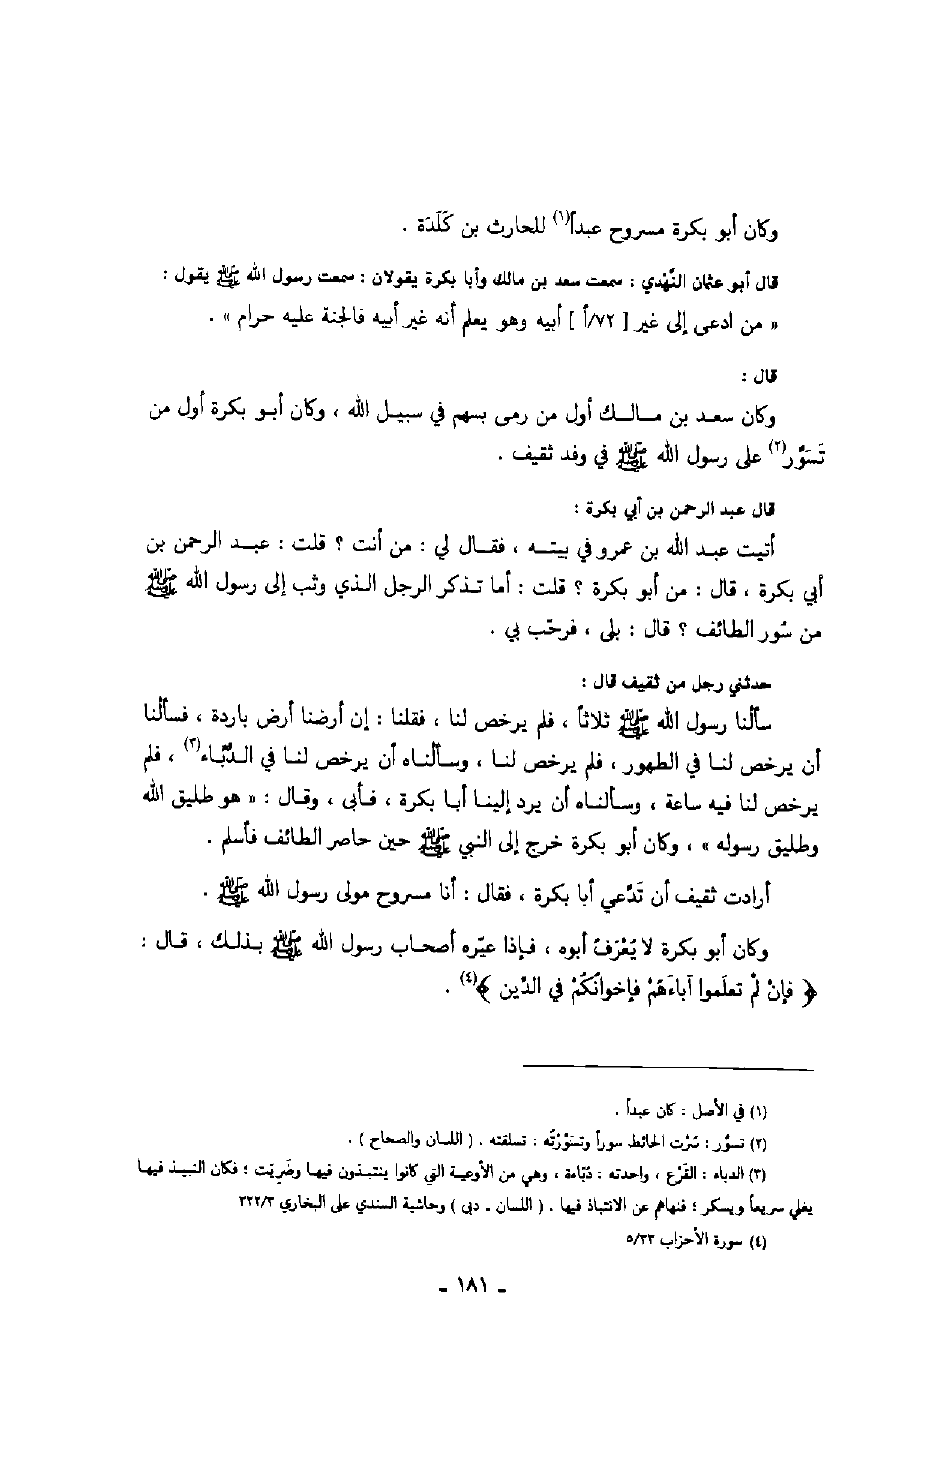 وكان أبو بكرة مسروح عبداً(١) للحارث بن كَلَدَة .
قال أبو عثمان النَّهْدي : سمعت سعد بن مالك وأبا بكرة يقولان : سمعت رسول الله ﷺ يقول :
« من ادعى إلى غير [ ٧٢/أ ] أبيه وهو يعلم أنه غير أبيه فالجنة عليه حرام » .
قال :
وكان سعد بن مالك أول من رمى بسهم في سبيل الله ، وكان أبو بكرة أول من
تَسَوَّر(٢) على رسول الله ﷺ في وفد ثقيف .
قال عبد الرحمن بن أبي بكرة :
أتيت عبد الله بن عمرو في بيته ، فقال لي : من أنت ؟ قلت : عبد الرحمن بن
أبي بكرة ، قال : من أبو بكرة ؟ قلت : أما تذكر الرجل الذي وثب إلى رسول الله ﷺ
من سُور الطائف ؟ قال : بلى ، فرحّب بي .
حدثني رجل من ثقيف قال :
سألنا رسول الله ﷺ ثلاثاً ، فلم يرخص لنا ، فقلنا : إن أرضنا أرض باردة ، فسألنا
أن يرخص لنا في الطهور ، فلم يرخص لنا ، وسألناه أن يرخص لنا في الدُّبَّاء(٣) ، فلم
يرخص لنا فيه ساعة ، وسألناه أن يرد إلينا أبا بكرة ، فأبى ، وقال : « هو طليق الله
وطليق رسوله » ، وكان أبو بكرة خرج إلى النبي ﷺ حين حاصر الطائف فأسلم .
أرادت ثقيف أن تَدَّعي أبا بكرة ، فقال : أنا مسروح مولى رسول الله ﷺ .
وكان أبو بكرة لا يُعْرَفُ أبوه ، فإذا عيّره أصحاب رسول الله ﷺ بذلك ، قال :
﴿ فإنْ لَمْ تعلَموا آباءَهَمْ فإخوانُكُمْ في الدِّين ﴾(٤) .
(١) في الأصل : كان عبداً .
(٢) تسوَّر : سُرْت الحائط سوراً وتسَوَّرْتُه : تسلقته . ( اللسان والصحاح ) .
(٣) الدباء : القَرْع ، واحدته : دُبّاءة ، وهي من الأوعية التي كانوا ينتبذون فيها وضَرِيَت ؛ فكان النبيذ فيها
يغلي سريعاً ويسكر ؛ فنهاهم عن الانتباذ فيها . ( اللسان ـ دبي ) وحاشية السندي على البخاري ٣٢٢/٣
(٤) سورة الأحزاب ٥/٣٣
ـ ١٨١ ـ